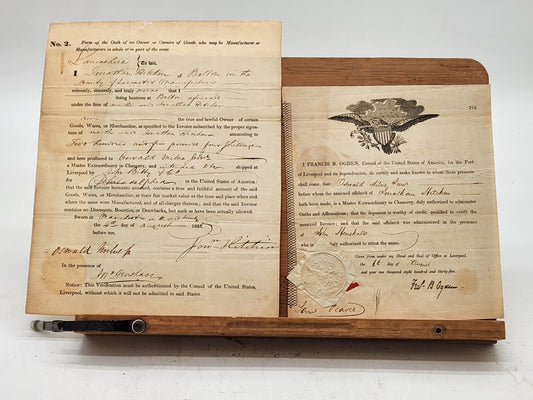 No. 2. Form of the Oath of an Owner or Owners of Goods who may be Manufacturer or
Manufacturers in whole or in part of the same.
Lancashire } To wit.
I Jonathan Hitchin of Bolton in the
county of Lancaster Manufacturer
solemnly, sincerely, and truly swear that I
doing business at Bolton aforesaid
under the firm of me the said Jonathan Hitchin
am the true and lawful Owner of certain
Goods, Wares, or Merchandize, as specified in the Invoice subscribed by the proper signa-
ture of me the said Jonathan Hitchin amounting to
Two hundred and five pounds four shillings
and here produced to Oswald Milne Junr
a Master Extraordinary in Chancery, and intended to be shipped at
Liverpool by John
for in the United States of America
that the said Invoice herewith annexed, contains a true and faithful account of the said
Goods, Wares, or Merchandize, at their fair market value at the time and place when and
where the same were Manufactured, and of all charges thereon; and that the said Invoice
contains no Discounts, Bounties, or Drawbacks, but such as have been actually allowed.
Sworn at Manchester in the County
the 4th day of August 1835
before me, Jonn Hitchin
Oswald Milne jr
In the presence of
Notice: This Verification must be authenticated by the Consul of the United States,
Liverpool, without which it will not be admitted in said States.
I FRANCIS B. OGDEN, Consul of the United States of America, for the Port
of Liverpool and its dependencies, do certify and make known to whom these presents
shall come, that Oswald Milne Junr
before whom the annexed affidavit of Jonathan Hitchin
hath been made, is a Master Extraordinary in Chancery, duly authorized to administer
Oaths and Affirmations; that the deponent is worthy of credit, qualified to verify the
annexed Invoice; and that the said affidavit was administered in the presence
of John
who is duly authorized to attest the same.
Given from under my Hand and Seal of Office at Liverpool,
the 6th day of August
and year one thousand eight hundred and thirty-five.
Fras B Ogden